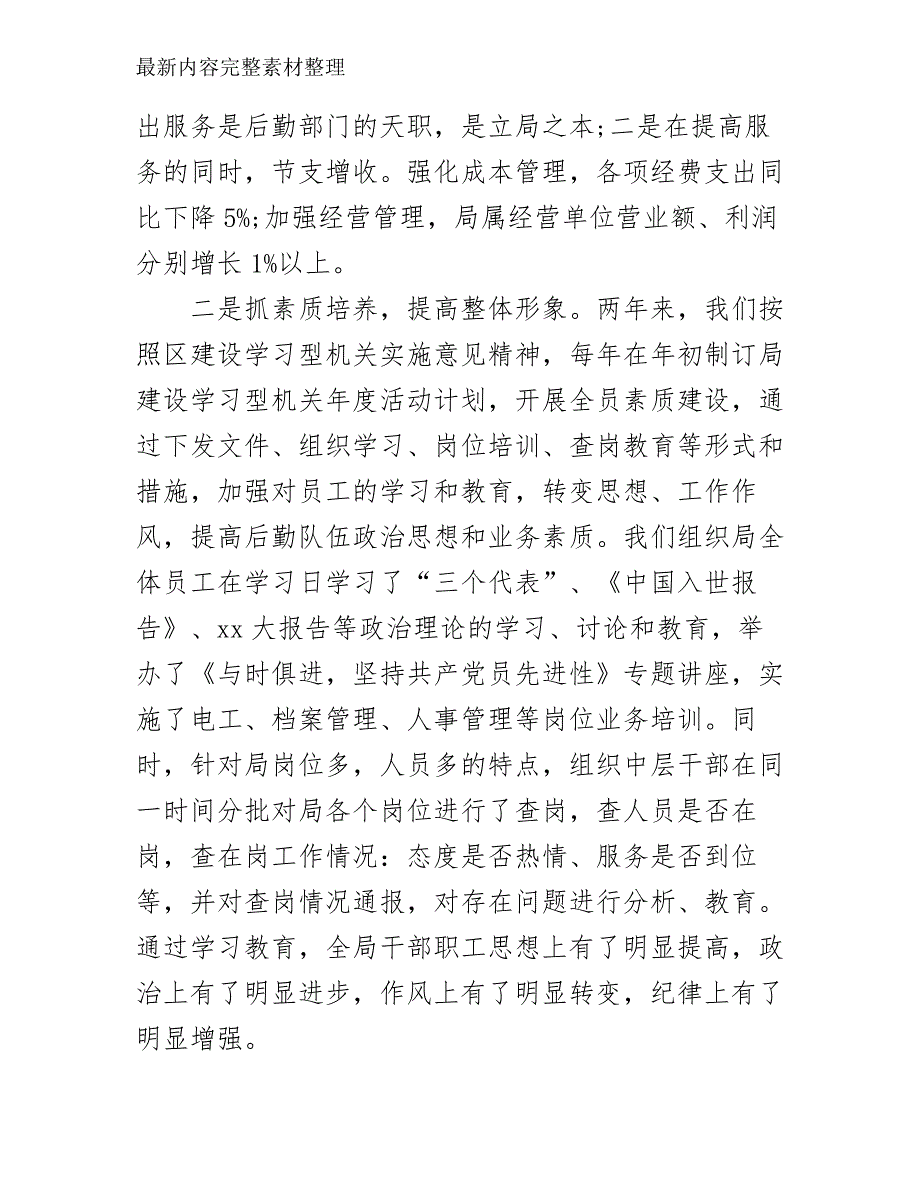 最新内容完整素材整理
出服务是后勤部门的天职，是立局之本;二是在提高服
务的同时，节支增收。强化成本管理，各项经费支出同
比下降 5%;加强经营管理，局属经营单位营业额、利润
分别增长 1%以上。
二是抓素质培养，提高整体形象。两年来，我们按
照区建设学习型机关实施意见精神，每年在年初制订局
建设学习型机关年度活动计划，开展全员素质建设，通
过下发文件、组织学习、岗位培训、查岗教育等形式和
措施，加强对员工的学习和教育，转变思想、工作作
风，提高后勤队伍政治思想和业务素质。我们组织局全
体员工在学习日学习了“三个代表”、《中国入世报
告》、xx 大报告等政治理论的学习、讨论和教育，举
办了《与时俱进，坚持共产党员先进性》专题讲座，实
施了电工、档案管理、人事管理等岗位业务培训。同
时，针对局岗位多，人员多的特点，组织中层干部在同
一时间分批对局各个岗位进行了查岗，查人员是否在
岗，查在岗工作情况：态度是否热情、服务是否到位
等，并对查岗情况通报，对存在问题进行分析、教育。
通过学习教育，全局干部职工思想上有了明显提高，政
治上有了明显进步，作风上有了明显转变，纪律上有了
明显增强。